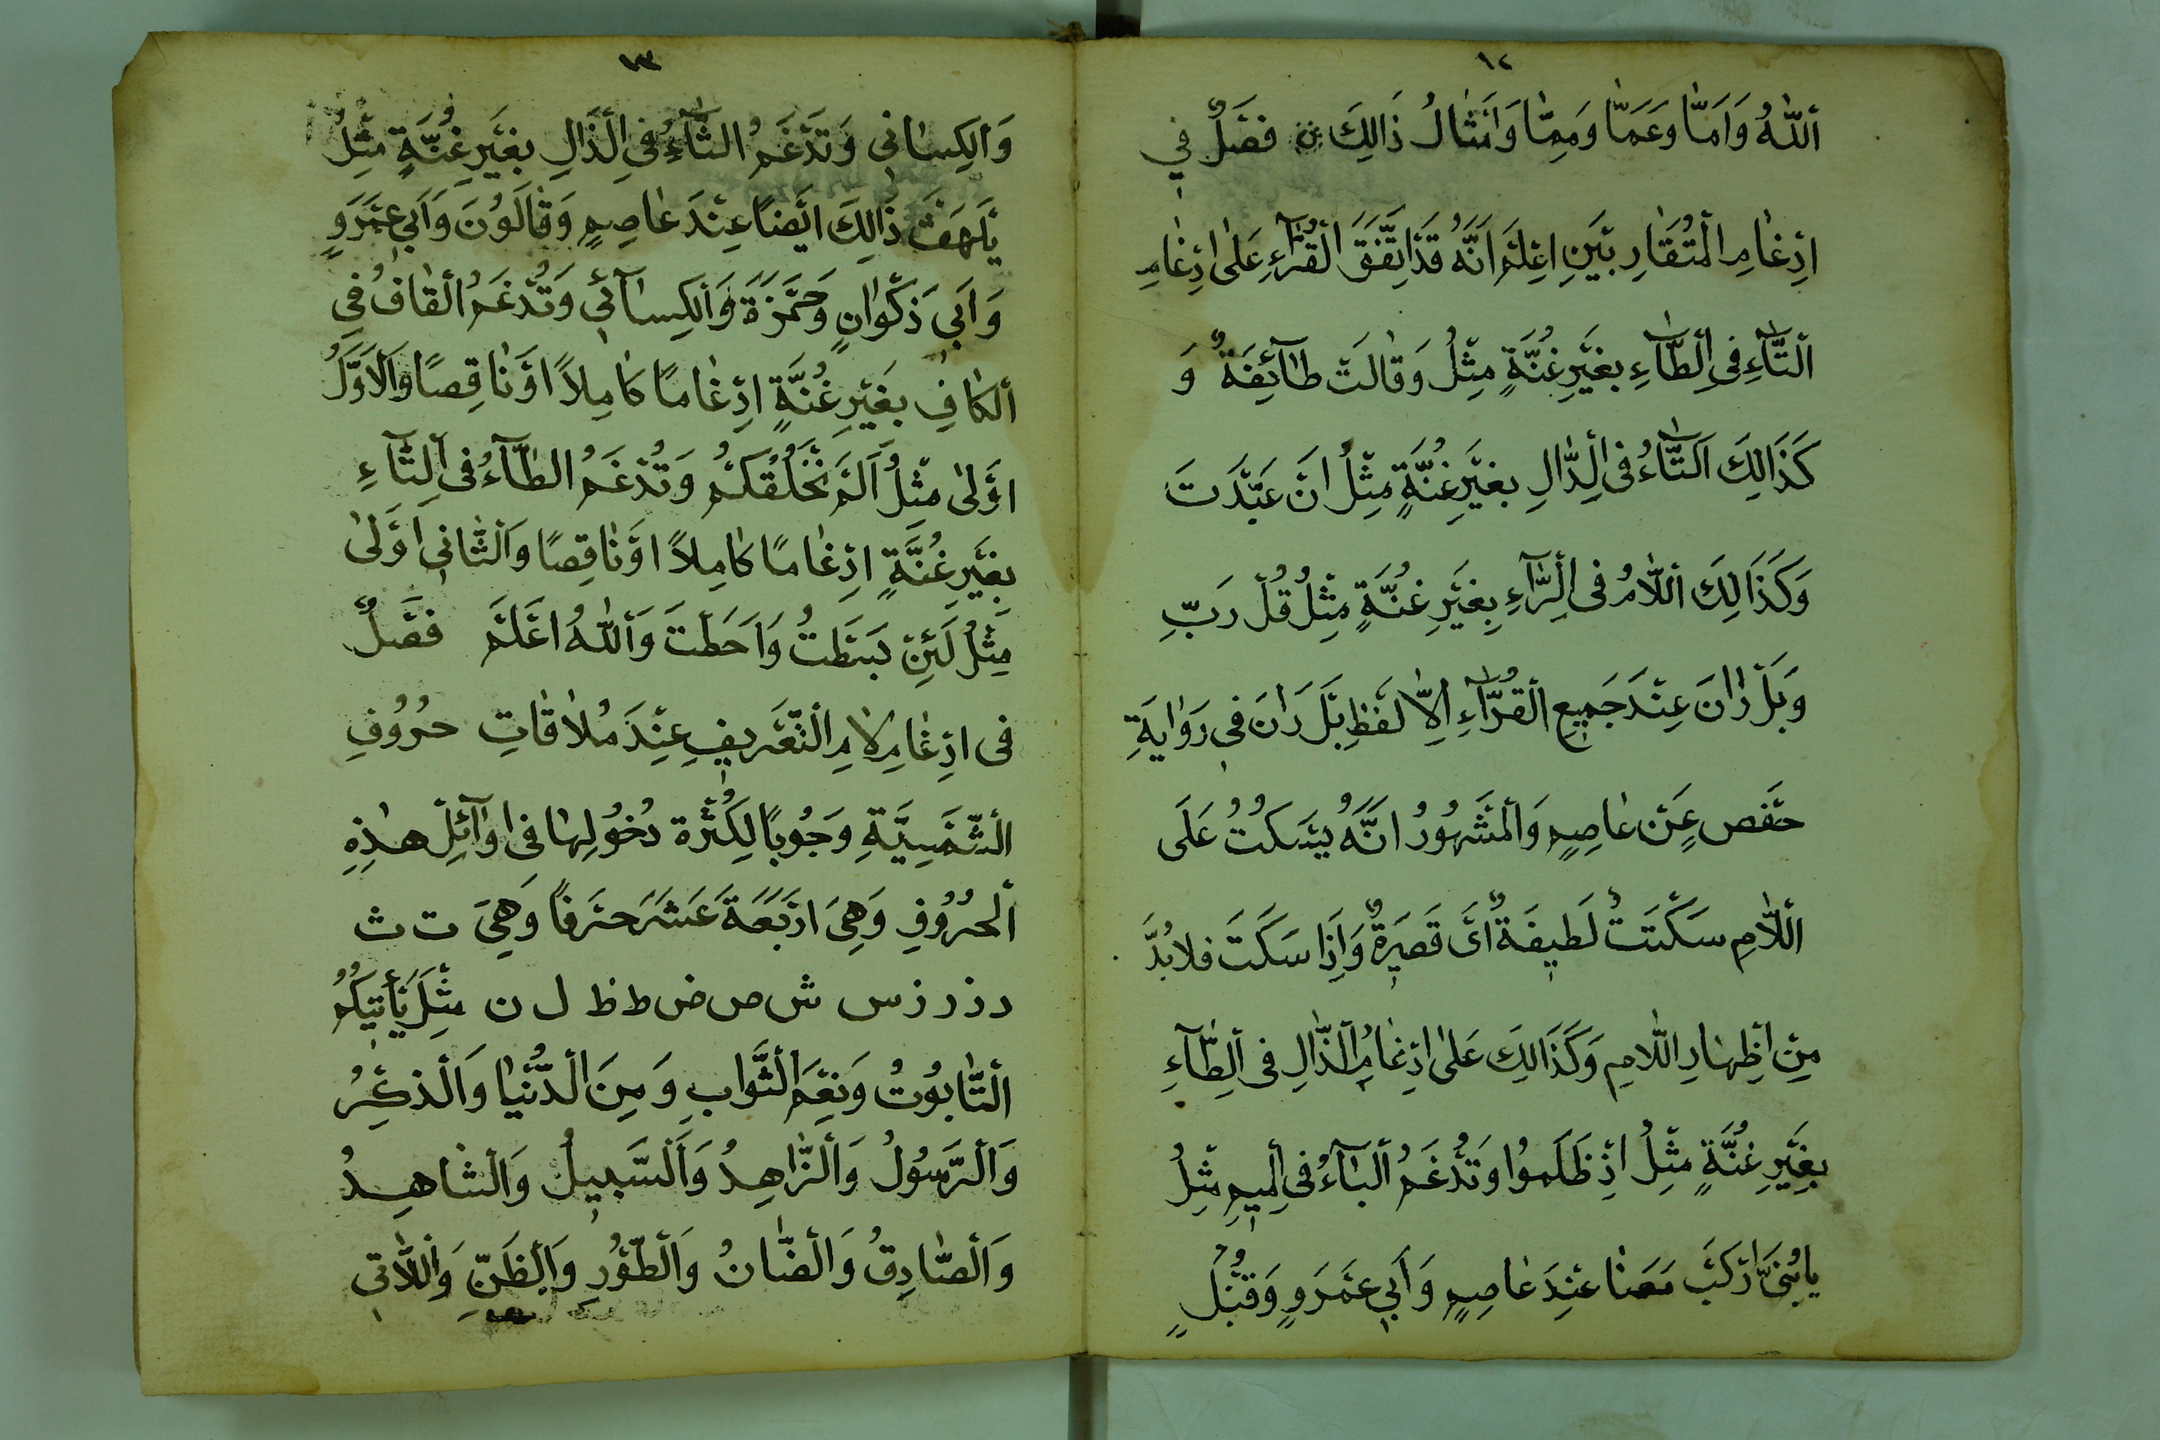 ١٢
اَللّٰهُ وَاَمَّا وَعَمَّا وَمِمَّا وَاَمْثَالُ ذَالِكَ فَصْلٌ فِي
اِدْغَامِ الْمُتَقَارِبَيْنِ اِعْلَمْ اَنَّهُ قَدْ اِتَّفَقَ الْقُرَّآءِ عَلٰى اِدْغَامِ
اَلتَّآءِ فِى الطَّآءِ بِغَيْرِ غُنَّةٍ مِثْلُ وَقَالَتْ طَآئِفَةٌ وَ
كَذَالِكَ اَلتَّآءُ فِى الدَّالِ بِغَيْرِ غُنَّةٍ مِثْلُ اَنْ عَبَّدَتَ
وَكَذَالِكَ اَللَّامُ فِى الرَّآءِ بِغَيْرِ غُنَّةٍ مِثْلُ قُلْ رَبِّ
وَبَلْ رَانَ عِنْدَ جَمِيعِ الْقُرَّآءِ اِلَّا لَفْظِ بَلْ رَانَ فِي رَوَايَةِ
حَفْص عَنْ عَاصِمٍ وَالْمَشْهُورُ اَنَّهُ يَسْكُتُ عَلَى
اَللَّامِ سَكْتَتْ لَطِيفَةٌ اَىْ قَصِيْرَةٌ وَاِذَا سَكَتَ فَلَابُدَّ
مِنْ اِظْهَارِ اللَّامِ وَكَذَالِكَ عَلٰى اِدْغَامُ الذَّالِ فِى الظَّآءِ
بِغَيْرِ غُنَّةٍ مِثْلُ اِذْ ظَلَمُوا وَتُدْغَمُ الْبَآءُ فِى الْمِيمِ مِثْلُ
يَابُنَىَّ ارْكَبْ مَعَنَا عِنْدَ عَاصِمٍ وَاَبِي عَمْرٍو وَقُنْبُلٍ
١٣
وَالْكِسَانِي وَتُدْغَمُ الثَّآءُ فِى الذَّالِ بِغَيْرِ غُنَّةٍ مِثْلُ
يَلْهَثْ ذَالِكَ اَيْضًا عِنْدَ عَاصِمٍ وَقَالَوُنَ وَاَبِي عَمْرَوٍ
وَاَبِي ذَكْوَانٍ وَحَمْزَةَ وَالْكِسَآئِي وَتُدْغَمُ الْقَافُ فِي
الْكَافِ بِغَيْرِ غُنَّةٍ اِدْغَامًا كَامِلًا اَوْ نَاقِصًا وَالْاَوَّلُ
اَوْلٰى مِثْلُ اَلَمْ نَخْلُقْكُمْ وَتُدْغَمُ الطَّآءُ فِى التَّآءِ
بِغَيْرِ غُنَّةٍ اِدْغَامًا كَامِلًا اَوْ نَاقِصًا وَالثَّانِي اَوْلٰى
مِثْلُ لَئِنْ بَسَطْتُ وَاَحَطْتَ وَاللّٰهُ اَعْلَمْ فَصْلٌ
فى اِدْغَامِ لَامِ التَّعْرِيفِ عِنْدَ مُلَاقَاتِ حُرُوفِ
الشَّمْسِيَّةِ وَجُوبًا لِكَثْرَة دُخُولِهَا فِى اَوَآئِلِ هٰذِهِ
اَلْحُرُوفِ وَهِيَ اَرْبَعَةَ عَشَرَ حَرْفًا وَهِيَ ت ث
د ذ ر ز س ش ص ض ط ظ ل ن مِثْلَ يَأْتِيَكُمُ
التَّابُوتُ وَنِعْمَ الثَّوَابِ وَمِنَ الدُّنْيَا وَالذِّكْرُ
وَالرَّسُولُ وَالزَّاهِدُ وَالسَّبِيلُ وَالشَاهِدُ
وَالصَّادِقُ وَالضَّانُ وَالطُّورِ وَالظَّنِّ وَاللَّاتِي